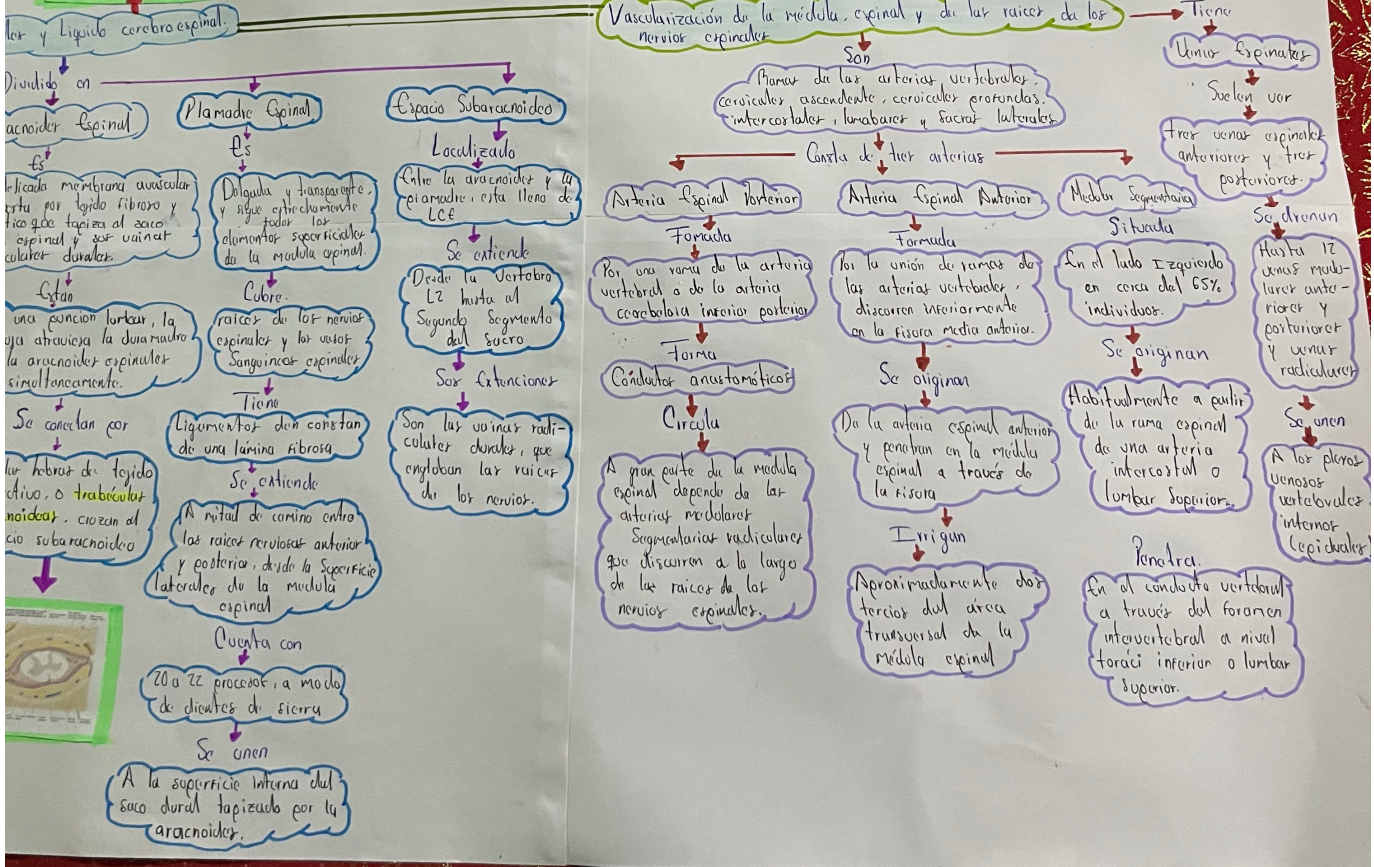 y Liquido cerebro espinal.
Dividido en
acnoides Espinal
Es
elicada membrana avascular
por tejido fibroso y
tico que tapiza al saco
espinal y sus vainas
culares durales.
Están
una punción lumbar, la
uja atraviesa la duramadre
la aracnoides espinales
simultaneamente.
Se conectan por
hebras de tejido
ctivo, o trabéculas
noideas, cruzan el
cio subaracnoideo
Piamadre Espinal
Es
Delgada y transparente,
y sigue estrechamente
todos los
elementos superficiales
de la medula espinal.
Cubre.
raices de los nervios
espinales y los vasos
Sanguineos espinales
Tiene
Ligamentos den constan
de una lámina fibrosa
Se extiende
A mitad de camino entre
las raices nerviosas anterior
y posterior, desde la Superficie
laterales de la medula
espinal
Cuenta con
20 a 22 procesos, a modo
de dientes de sierra
Se unen
A la superficie interna del
saco dural tapizado por la
aracnoides.
Espacio Subaracnoideo
Localizado
Entre la aracnoides y la
piamadre, esta lleno de
LCE
Se extiende
Desde la vertebra
L2 hasta el
Segundo Segmento
del Sacro
Sus Extenciones
Son las vainas radi-
culares durales, que
engloban las raices
de los nervios.
Vascularización de la médula espinal y de las raices de los
nervios espinales
Son
Ramas de las arterias vertebrales,
cervicales ascendente, cervicales profundas,
intercostales, lumabares y sacras laterales
Consta de tres arterias
Arteria Espinal Posterior
Formada
Por una rama de la arteria
vertebral o de la arteria
cerebelosa inferior posterior
Forma
Conductos anastomóticos
Circula
A gran parte de la medula
espinal depende de las
arterias medulares
Segmentarias radiculares
que discurren a lo largo
de las raices de los
nervios espinales.
Arteria Espinal Anterior
Formada
Por la unión de ramas de
las arterias vertebrales,
discurren inferiormente
en la fisura media anterior.
Se originan
De la arteria espinal anterior
y penetran en la médula
espinal a través de
la fisura
Irrigan
Aproximadamente dos
tercios del área
transversal de la
médula espinal
Medular Segmentaria
Situada
En el lado Izquierdo
en cerca del 65%
individuos.
Se originan
Habitualmente a partir
de la rama espinal
de una arteria
intercostal o
lumbar Superior.
Penetra.
En el conducto vertebral
a través del foramen
intervertebral a nivel
toráci inferior o lumbar
Superior.
Tiene
Venas Espinales
Suelen ver
tres venas espinales
anteriores y tres
posteriores.
Se drenan
Hasta 12
venas medu-
lares ante-
riores y
posteriores
y venas
radiculares
Se unen
A los plexos
venosos
vertebrales
internos
(epidurales)